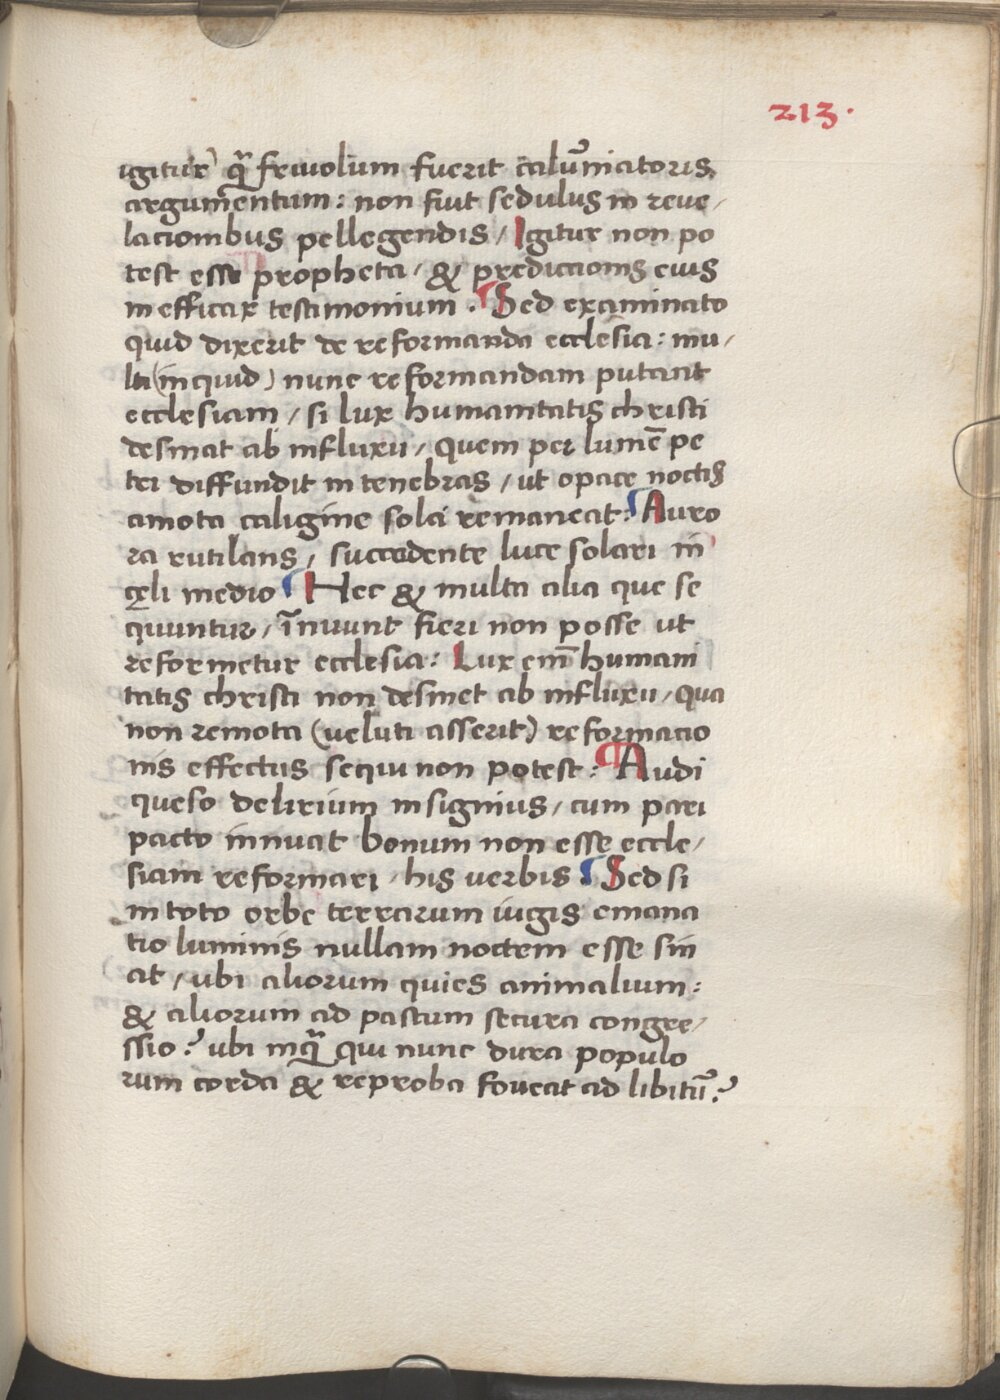 213.
igitur qͣ friuolum fuerit calūniatoris
argumentum: non fuit sedulus in reue/
lacionibus pellegendis/ Igitur non po
test esse propheta/ & predictionis eius
inefficax testimonium. Sed examinato
quid dixerit de reformanda ecclesia: mu/
lti (inquid) nunc reformandam putant
ecclesiam/ si lux humanitatis christi
desinat ab influxu/ quem per lumē pe
tri diffundit in tenebras/ ut opace noctis
amota caligine sola remaneat: Auro
ra rutilans/ succedente luce solari in
cęli medio Hec & multa alia que se
quuntur/ īnuunt fieri non posse ut
reformetur ecclesia: Lux em̄ humani
tatis christi non desinet ab influxu/ qua
non remota (veluti asserit) reformacio
nis effectus sequi non potest: Audi
queso delirium insignius/ cum pari
pacto innuat bonum non esse eccle/
siam reformari/ his uerbis Sed si
in toto orbe terrarum iugis emana
tio luminis nullam noctem esse sin
at/ ubi aliorum quies animalium:
& aliorum ad pastum secura congre/
ssio? ubi inqͣ qui nunc dura populo
rum corda & reproba foueat ad libitū?